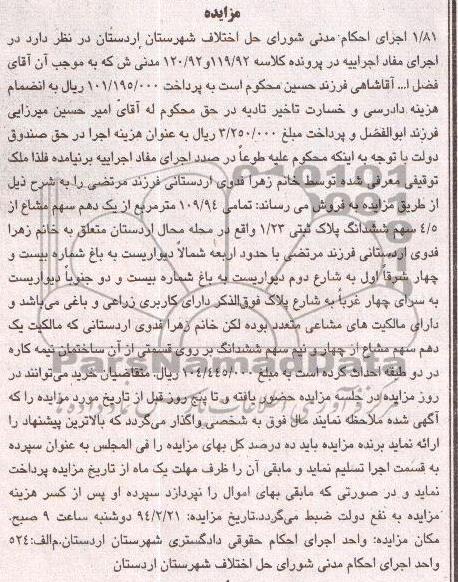 مزایده
۱/۸۱ اجرای احکام مدنی شورای حل اختلاف شهرستان اردستان در نظر دارد در
اجرای مفاد اجراییه در پرونده کلاسه ۱۱۹/۹۲و۱۲۰/۹۲ مدنی ش که به موجب آن آقای
فضل ا... آقاشاهی فرزند حسین محکوم است به پرداخت ۱۰۱/۱۹۵/۰۰۰ ریال به انضمام
هزینه دادرسی و خسارت تاخیر تادیه در حق محکوم له آقای امیر حسین میرزایی
فرزند ابوالفضل و پرداخت مبلغ ۳/۲۵۰/۰۰۰ ریال به عنوان هزینه اجرا در حق صندوق
دولت با توجه به اینکه محکوم علیه طوعاً در صدد اجرای مفاد اجراییه برنیامده فلذا ملک
توقیفی معرفی شده توسط خانم زهرا فدوی اردستانی فرزند مرتضی را به شرح ذیل
از طریق مزایده به فروش می رساند: تمامی ۱۰۹/۹۴ مترمربع از یک دهم سهم مشاع از
۴/۵ سهم ششدانگ پلاک ثبتی ۱/۲۳ واقع در محله محال اردستان متعلق به خانم زهرا
فدوی اردستانی فرزند مرتضی با حدود اربعه شمالاً دیواریست به باغ شماره بیست و
چهار شرقاً اول به شارع دوم دیواریست به باغ شماره بیست و دو جنوباً دیواریست
به سرای چهار غرباً به شارع پلاک فوق‌الذکر دارای کاربری زراعی و باغی می‌باشد و
دارای مالکیت های مشاعی متعدد بوده لکن خانم زهرا فدوی اردستانی که مالکیت یک
دهم سهم مشاع از چهار و نیم سهم ششدانگ بر روی قسمتی از آن ساختمان نیمه کاره
در دو طبقه احداث کرده است به مبلغ ۱۰۴/۴۴۵/۰۰۰ ریال. متقاضیان خرید می‌توانند در
روز مزایده در جلسه مزایده حضور یافته و تا پنج روز قبل از تاریخ مورد مزایده را که
آگهی شده ملاحظه نمایند مال فوق به شخصی واگذار می‌گردد که بالاترین پیشنهاد را
ارائه نماید برنده مزایده باید ده درصد کل بهای مزایده را فی المجلس به عنوان سپرده
به قسمت اجرا تسلیم نماید و مابقی آن را ظرف مهلت یک ماه از تاریخ مزایده پرداخت
نماید و در صورتی که مابقی بهای اموال را نپردازد سپرده او پس از کسر هزینه
مزایده به نفع دولت ضبط می‌گردد.تاریخ مزایده: ۹۴/۲/۲۱ دوشنبه ساعت ۹ صبح.
مکان مزایده: واحد اجرای احکام حقوقی دادگستری شهرستان اردستان.م‌الف:۵۲۴
واحد اجرای احکام مدنی شورای حل اختلاف شهرستان اردستان